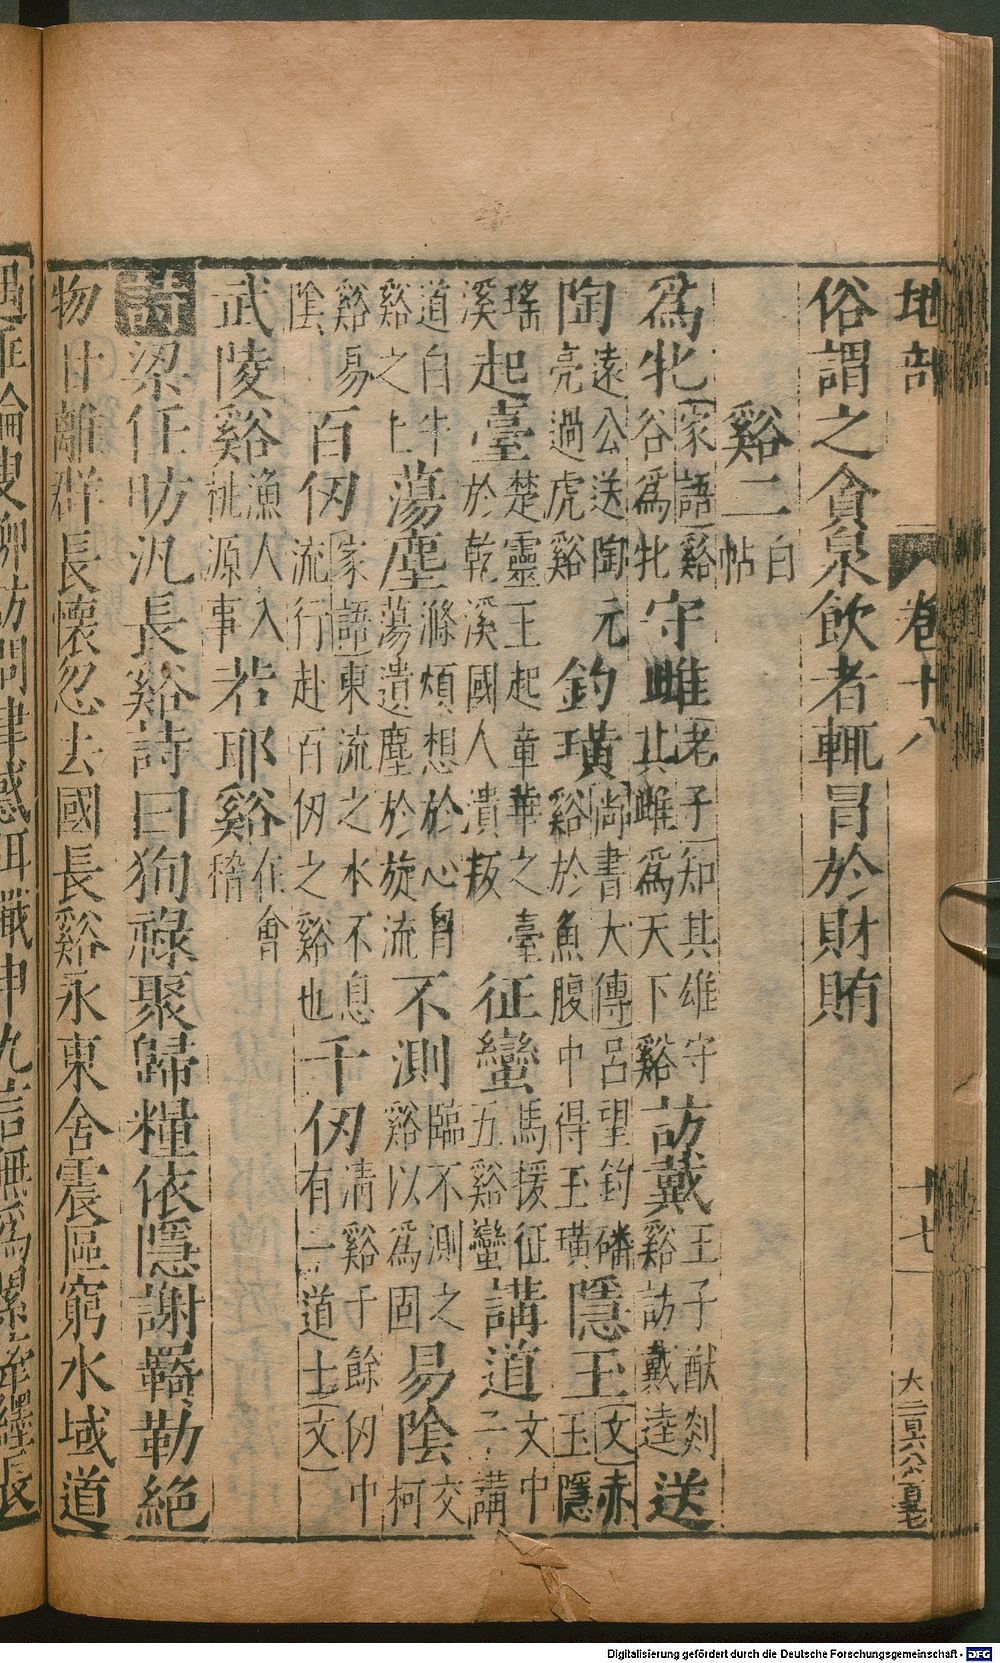 地部 卷十八 十七
俗謂之貪泉飲者輒冒於財賄
谿二白帖
爲牝家語谿谷爲牝守雌老子知其雄守其雌爲天下谿訪戴王子猷剡谿訪戴逵送
陶遠公送陶元亮過虎谿釣璜尚書大傳呂望釣磻谿於魚腹中得玉璜隱玉文赤玉隱
瑤溪起臺楚靈王起章華之臺於乾溪國人潰叛征蠻馬援征五谿蠻講道文中子講
道白牛谿之上蕩塵滌煩想於心胷蕩遺塵於旋流不測臨不測之谿以爲固易陰交柯
谿易陰百仞家語東流之水不息流行赴百仞之谿也千仞清谿千餘仞中有二道士文
武陵谿漁人入桃源事若耶谿在會稽
詩梁任昉汎長谿詩曰狥祿聚歸糧依隱謝羈勒絕
物甘離群長懷忽去國長谿永東舍震區窮水域道
遇垂綸叟聊訪問津惑珥纖申九言無爲累牽纏長
Digitalisierung gefördert durch die Deutsche Forschungsgemeinschaft - DFG